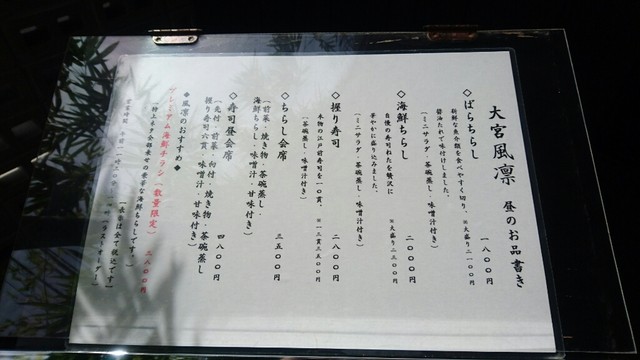 大宮風凛 昼のお品書き
◇ばらちらし 一八〇〇円
新鮮な魚介類を食べやすく切り、※大盛り二一〇〇円
醤油たれで味付けしました。
(ミニサラダ・茶碗蒸し・味噌汁付き)
◇海鮮ちらし 二〇〇〇円
自慢の寿司ねたを贅沢に ※大盛り二三〇〇円
華やかに盛り込みました。
(ミニサラダ・茶碗蒸し・味噌汁付き)
◇握り寿司 二八〇〇円
本物の江戸前寿司を一〇貫、※一二貫三五〇〇円
(茶碗蒸し・味噌汁付き)
◇ちらし会席 三五〇〇円
(前菜・焼き物・茶碗蒸し・
海鮮ちらし・味噌汁・甘味付き)
◇寿司昼会席 四八〇〇円
(先付・前菜・向付・焼き物・茶碗蒸し
握り寿司六貫・味噌汁・甘味付き)
◆風凛のおすすめ◆
プレミアム海鮮チラシ(数量限定) 三八〇〇円
(特上ネタ全部乗せの豪華な海鮮ちらしです。)
(表示は全て税込です)
営業時間 午前十一時三〇分